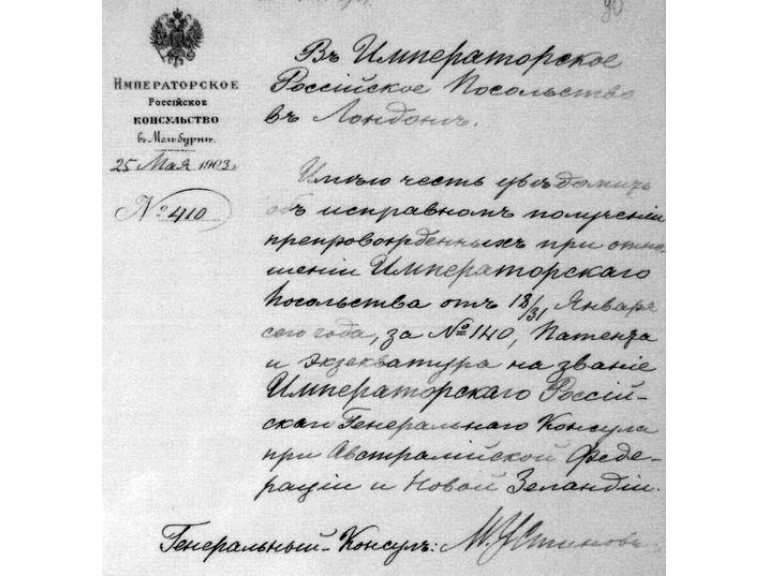 Императорское
Российское
консульство
въ Мельбурнѣ.
25 Мая 1903 г.
№ 410
Въ Императорское
Россійское Посольство
въ Лондонѣ.
Имѣю честь увѣдомить
объ исправномъ полученіи
препровожденныхъ при отно-
шеніи Императорскаго
Посольства отъ 18/31 Января
сего года, за № 140, Патента
и Экзекватура на званіе
Императорскаго Россій-
скаго Генеральнаго Консула
при Австралійской Феде-
раціи и Новой Зеландіи.
Генеральный-Консулъ: М. Устиновъ